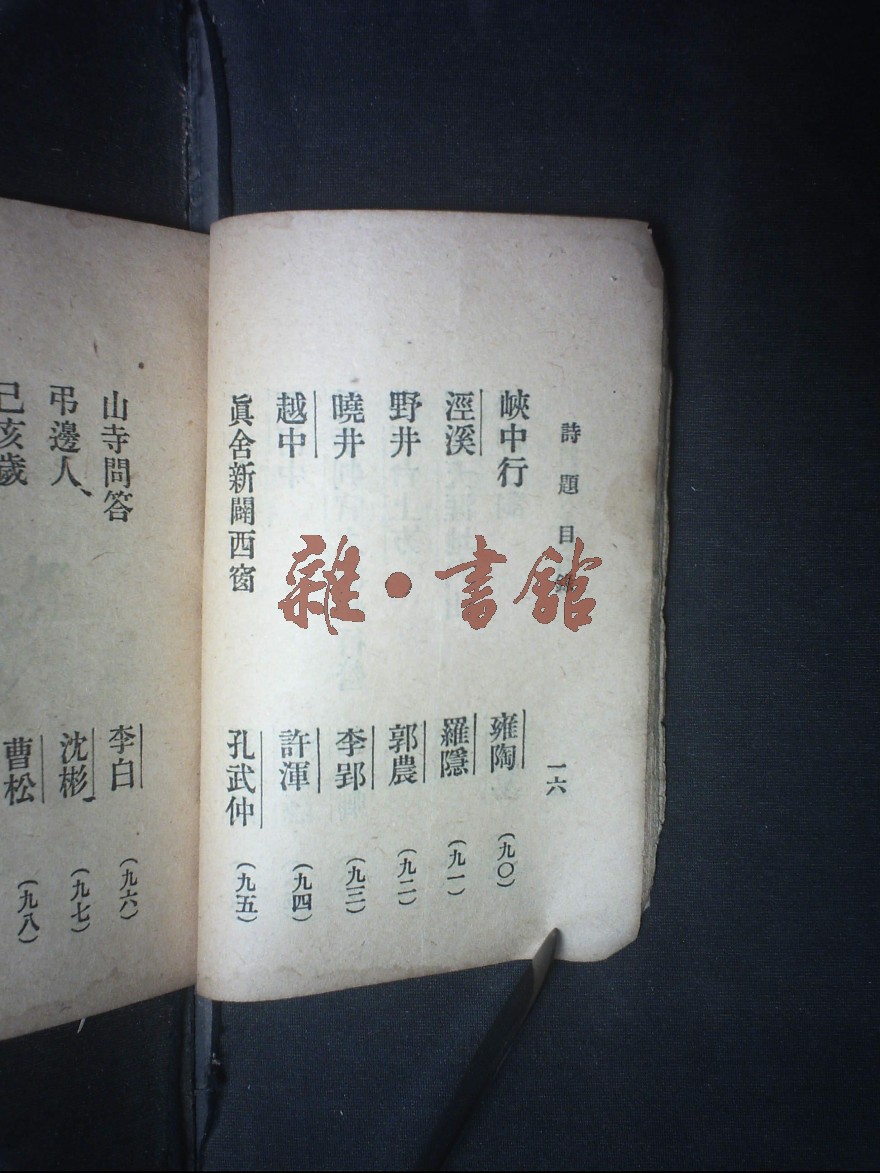 詩題目錄 一六
峽中行 雍陶 (九〇)
涇溪 羅隱 (九一)
野井 郭農 (九二)
曉井 李郢 (九三)
越中 許渾 (九四)
眞舍新闢西窗 孔武仲 (九五)
山寺問答 李白 (九六)
弔邊人 沈彬 (九七)
己亥歲 曹松 (九八)
雜·書館